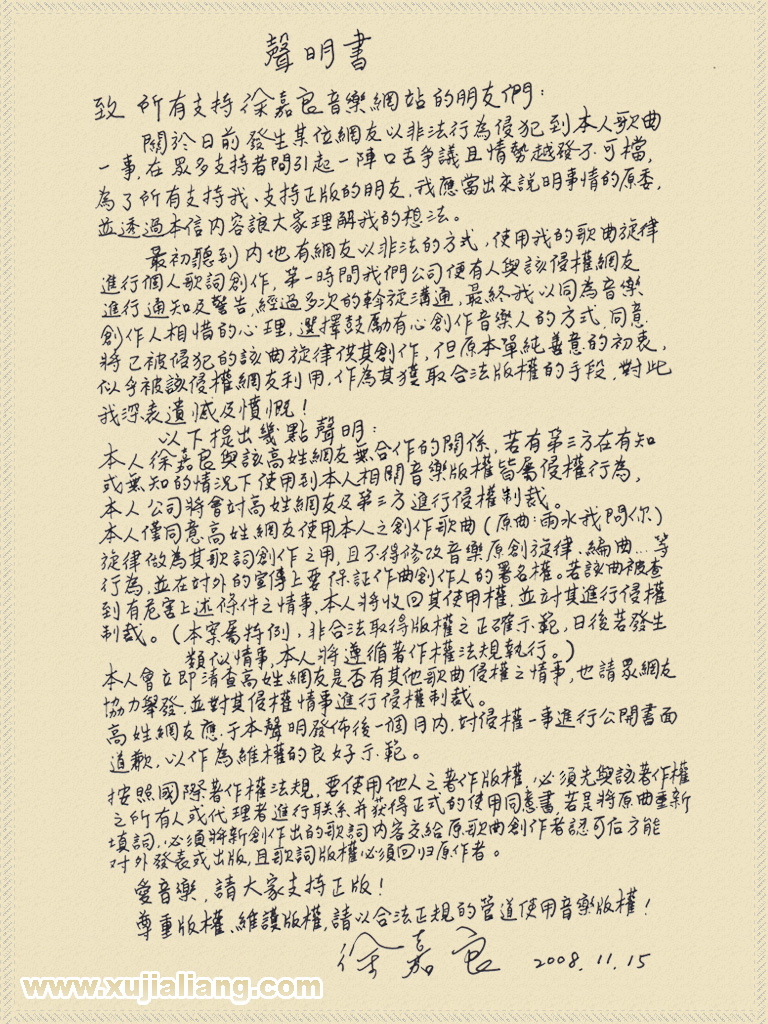 聲明書
致 所有支持徐嘉良音樂網站的朋友們：
關於日前發生某位網友以非法行為侵犯到本人歌曲
一事，在眾多支持者間引起一陣口舌爭議且情勢越發不可檔，
為了所有支持我、支持正版的朋友，我應當出來說明事情的原委，
並透過本信內容讓大家理解我的想法。
最初聽到內地有網友以非法的方式，使用我的歌曲旋律
進行個人歌詞創作，第一時間我們公司便有人與該侵權網友
進行通知及警告，經過多次的斡旋溝通，最終我以同為音樂
創作人相惜的心理，選擇鼓勵有心創作音樂人的方式，同意
將已被侵犯的該曲旋律供其創作，但原本單純善意的初衷，
似乎被該侵權網友利用，作為其獲取合法版權的手段，對此
我深表遺憾及憤慨！
以下提出幾點聲明：
本人徐嘉良與該高姓網友無合作的關係，若有第三方在有知
或無知的情況下使用到本人相關音樂版權皆屬侵權行為，
本人公司將會對高姓網友及第三方進行侵權制裁。
本人僅同意高姓網友使用本人之創作歌曲（原曲：雨水我問你）
旋律做為其歌詞創作之用，且不得修改音樂原創旋律、編曲…等
行為，並在對外的宣傳上要保証作曲創作人的署名權。若該曲被查
到有危害上述條件之情事，本人將收回其使用權，並対其進行侵權
制裁。（本案屬特例，非合法取得版權之正確示範，日後若發生
類似情事，本人將遵循著作權法規執行。）
本人會立即清查高姓網友是否有其他歌曲侵權之情事，也請眾網友
協力舉發，並對其侵權情事進行侵權制裁。
高姓網友應于本聲明發佈後一個月內，対侵權一事進行公開書面
道歉，以作為維權的良好示範。
按照國際著作權法規，要使用他人之著作版權，必須先與該著作權
之所有人或代理者進行联系并获得正式的使用同意書，若是將原曲重新
填詞，必須將新創作出的歌詞內容交給原歌曲創作者認可后方能
対外發表或出版，且歌詞版權必須回归原作者。
愛音樂，請大家支持正版！
尊重版權、維護版權，請以合法正規的管道使用音樂版權！
徐嘉良 2008.11.15
www.xujialiang.com